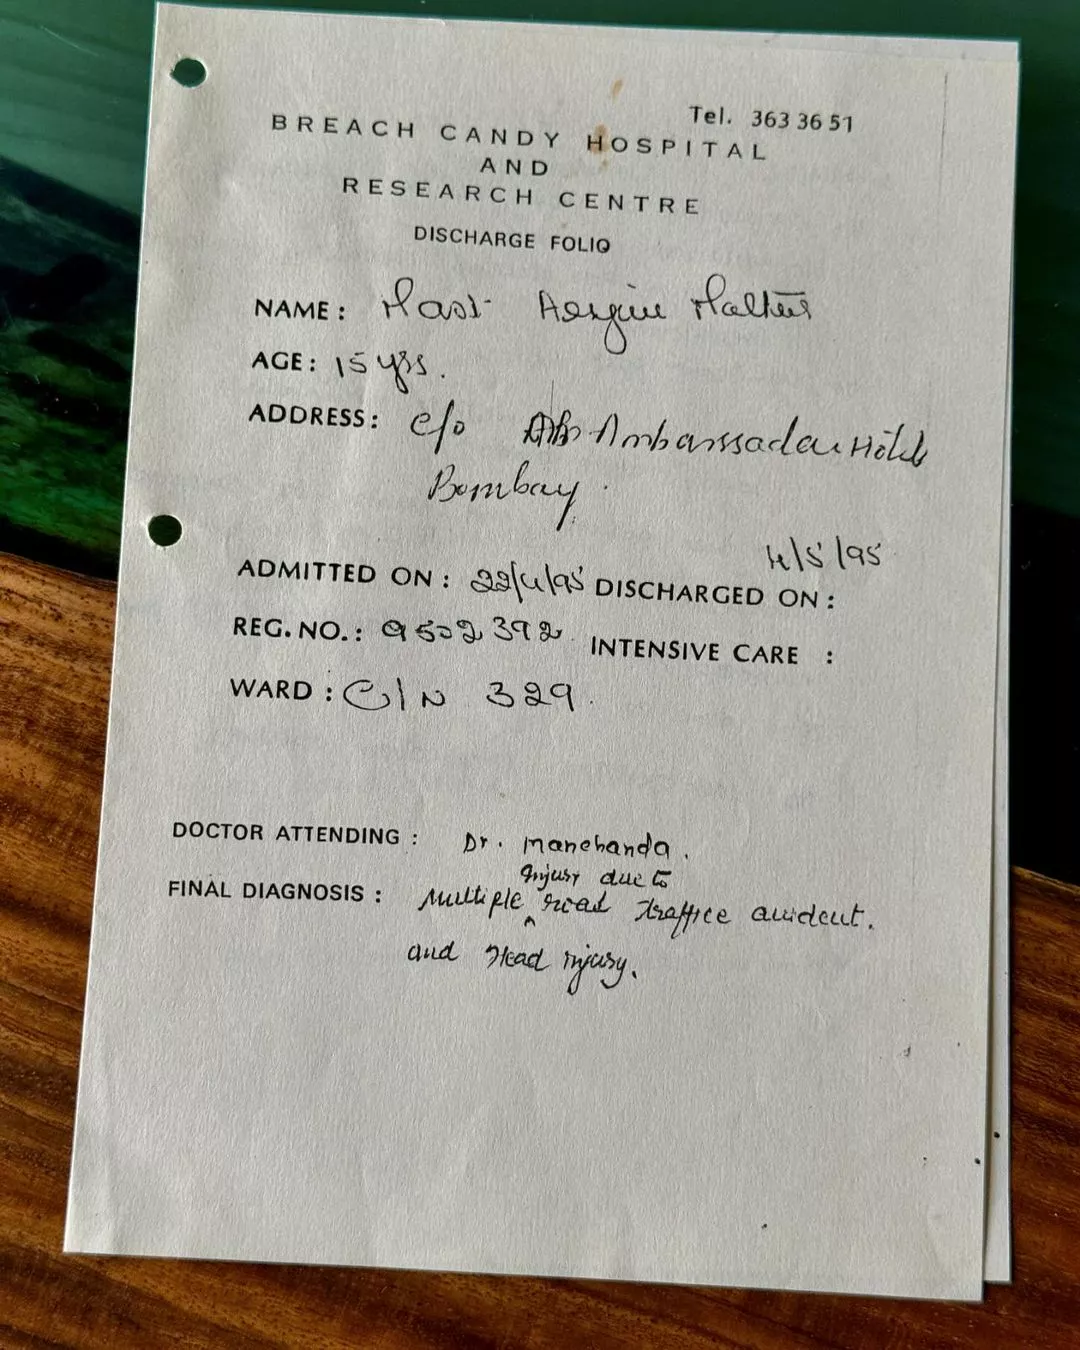 Tel. 363 36 51
BREACH CANDY HOSPITAL
AND
RESEARCH CENTRE
DISCHARGE FOLIO
NAME: Mast
AGE: 15 yrs.
ADDRESS: c/o Ambassador Hotels
Bombay.
4/5/95
ADMITTED ON: 22/4/95 DISCHARGED ON:
REG. NO.: 9502392 INTENSIVE CARE :
WARD: C/N 329.
DOCTOR ATTENDING : Dr. Manchanda.
Injury due to
FINAL DIAGNOSIS : Multiple ^ road traffice accident.
and Head injury.